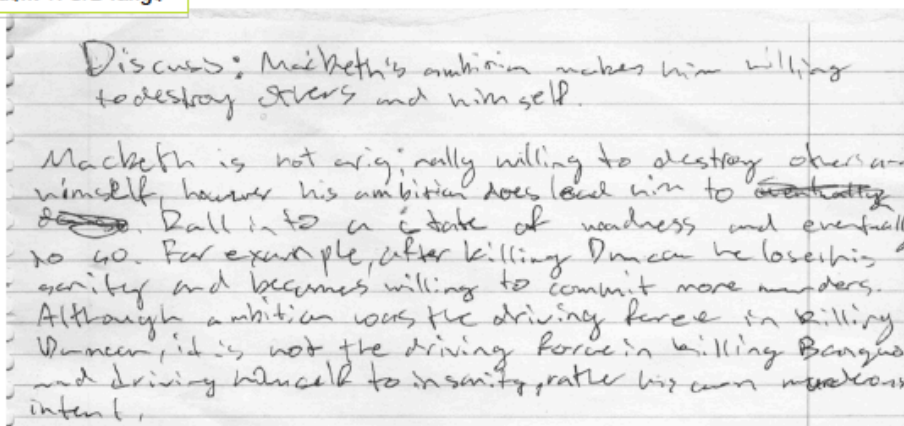 Discuss: Macbeth's ambition makes him willing
to destroy others and himself.
Macbeth is not originally willing to destroy others an
himself, however his ambition does lead him to eventually
fall into a state of madness and eventuall
do so. For example, after killing Duncan he loses his
sanity and becomes willing to commit more murders.
Although ambition was the driving force in killing
Duncan, it is not the driving force in killing Banquo
and driving himself to insanity, rather his own murderous
intent.